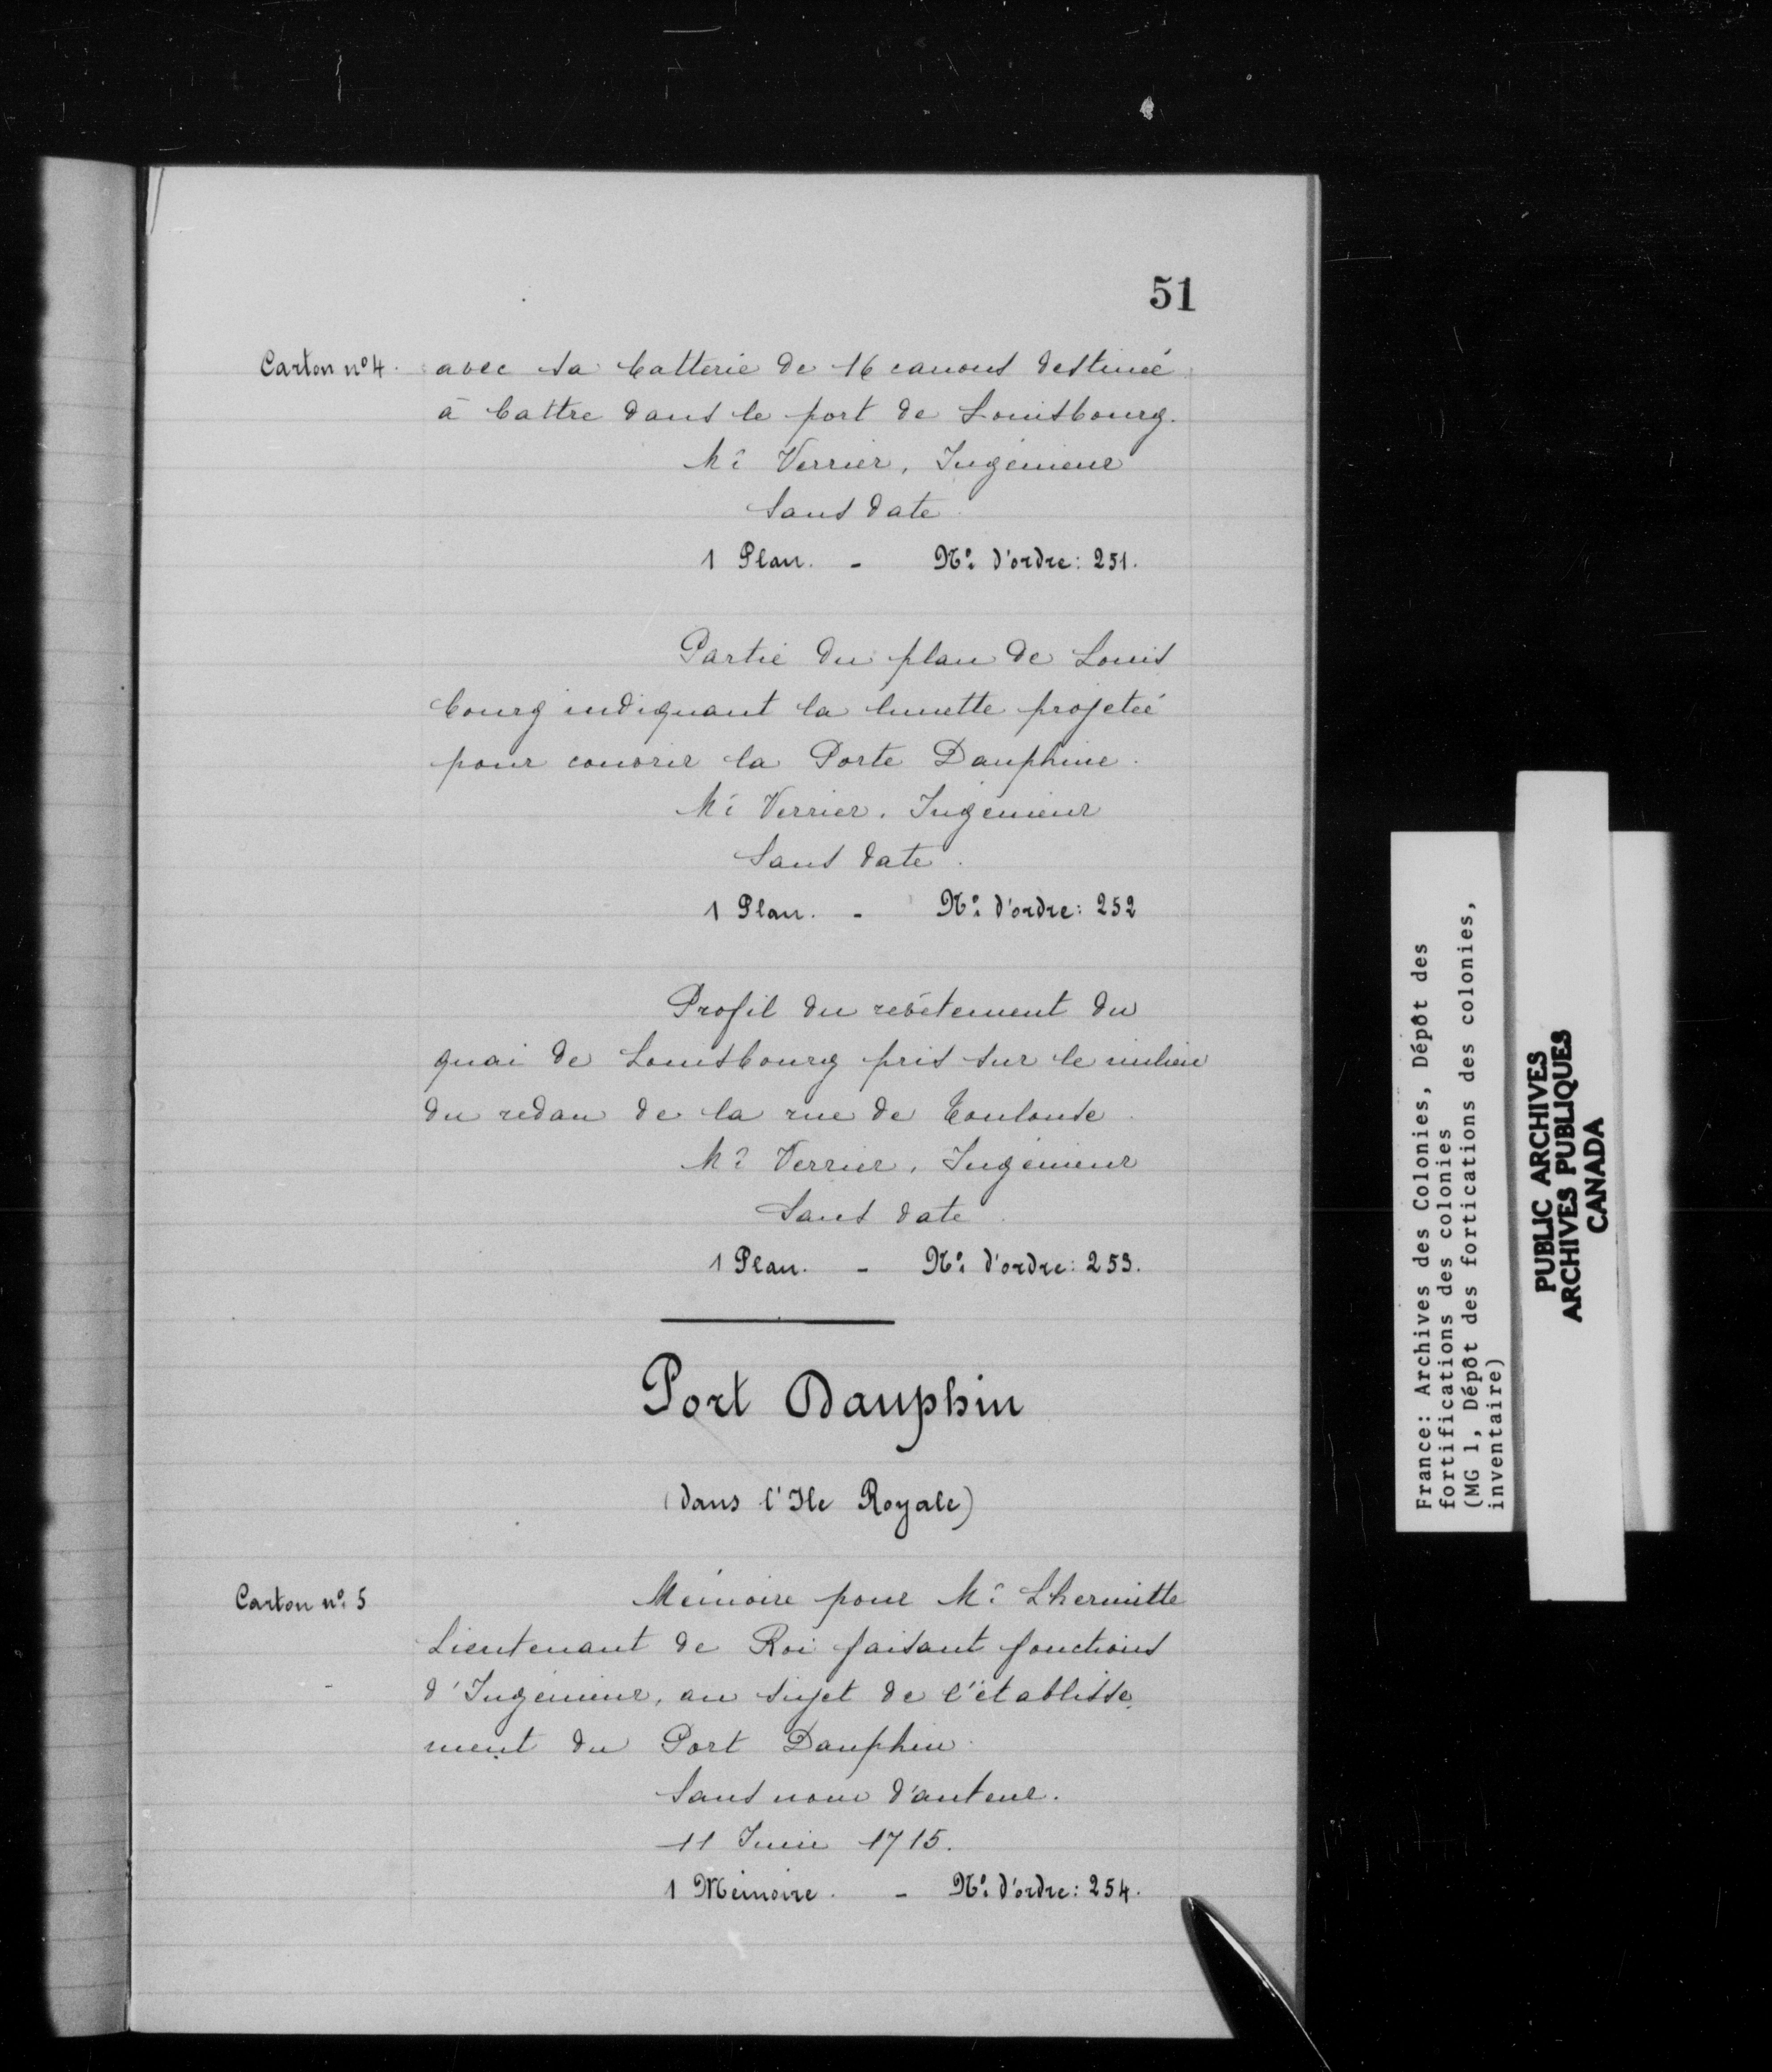 51
Carton nº 4. avec sa batterie de 16 canons destinée
à battre dans le port de Louisbourg.
Mr Verrier, Ingénieur
Sans date.
1 Plan. - Nº d'ordre: 251.
Partie du plan de Louis
bourg indiquant la lunette projetée
pour couvrir la Porte Dauphine.
Mr Verrier, Ingénieur
Sans date.
1 Plan. - Nº d'ordre: 252
Profil du revêtement du
quai de Louisbourg pris sur le milieu
du redan de la rue de Toulouse.
Mr Verrier, Ingénieur
Sans date.
1 Plan. - Nº d'ordre: 253.
Port Dauphin
(dans l'Ile Royale)
Carton nº 5 Mémoire pour Mr Lhermitte
Lieutenant de Roi faisant fonctions
d'Ingénieur, au sujet de l'établisse
ment du Port Dauphin.
Sans nom d'auteur.
11 Juin 1715.
1 Mémoire. - Nº d'ordre: 254.
France: Archives des Colonies, Dépôt des
fortifications des colonies
(MG 1, Dépôt des fortications des colonies,
inventaire)
PUBLIC ARCHIVES
ARCHIVES PUBLIQUES
CANADA